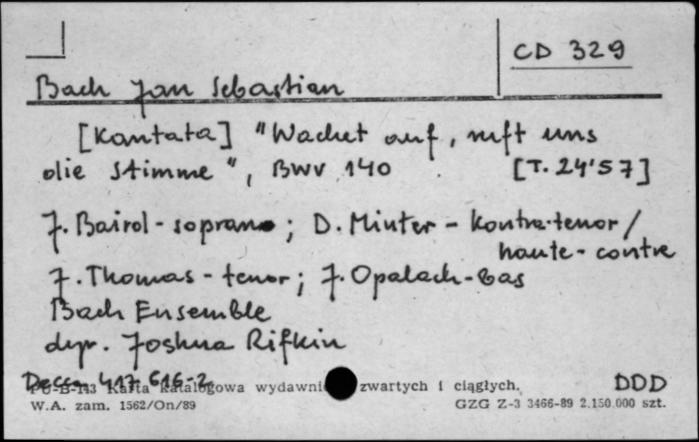 CD 329
Bach Jan Sebastian
[Kantata] "Wachet auf, ruft uns
die Stimme", BWV 140 [T. 24'57]
J. Baird - soprano; D. Minter - kontra-tenor/
haute-contre
J. Thomas - tenor; J. Opalach - bas
Bach Ensemble
dyr. Joshua Rifkin
Decca 417 616-2 DDD
PU-B-113 Karta katalogowa wydawni zwartych i ciągłych.
W.A. zam. 1562/On/89 GZG Z-3 3466-89 2.150.000 szt.